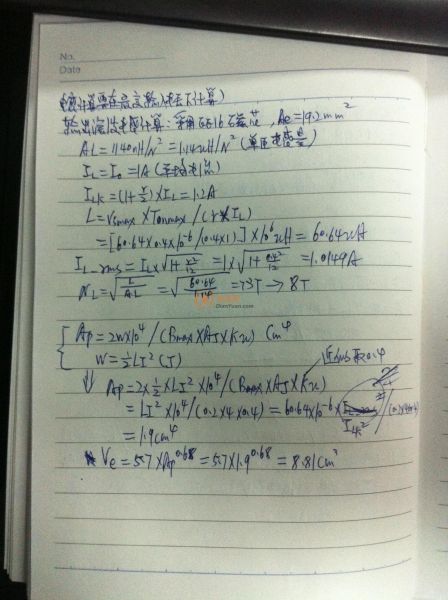 No.
Date
(电感计算要在最高输入电压下计算)
输出滤波电感计算: 采用EE16磁芯, Ae=19.2mm²
AL=1140nH/N²=1.14uH/N² (单匝电感量)
IL=Io=1A (平均电流)
ILK=(1+r/2)×IL=1.2A
L=Vsmax×Tonmax/(r×IL)
=[60.64×0.4×10⁻⁶/(0.4×1)]×10⁶uH=60.64uH
IL_rms=IL×√1+r²/12=1×√1+0.4²/12=1.0149A
NL=√L/AL=√60.64/1.14=7.3T→8T
Ap=2W×10⁴/(Bmax×AJ×Ku) Cm⁴
W=½LI²(J)
⇓ Ap=2×½×LI²×10⁴/(Bmax×AJ×Ku)
=LI²×10⁴/(0.2×4×0.4)=60.64×10⁻⁶×
ILK²
=1.9cm⁴
Ve=5.7×Ap^0.68=5.7×1.9^0.68=8.81cm³